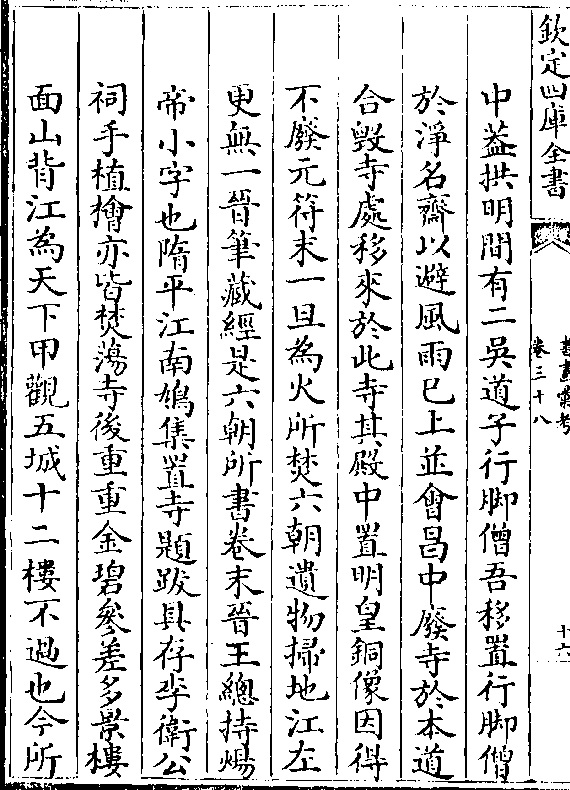 欽定四庫全書
書畫彙考
卷三十八
十六
中葢拱明間有二吳道子行脚僧吾移置行脚僧
於淨名齋以避風雨已上並會昌中廢寺於本道
合毀寺處移來於此寺其殿中置明皇銅像因得
不廢元符末一旦為火所焚六朝遺物掃地江左
更無一晉筆藏經是六朝所書卷末晉王總持煬
帝小字也隋平江南鳩集置寺題跋具存李衛公
祠手植檜亦皆焚蕩寺後重重金碧參差多景樓
面山背江為天下甲觀五城十二樓不過也今所